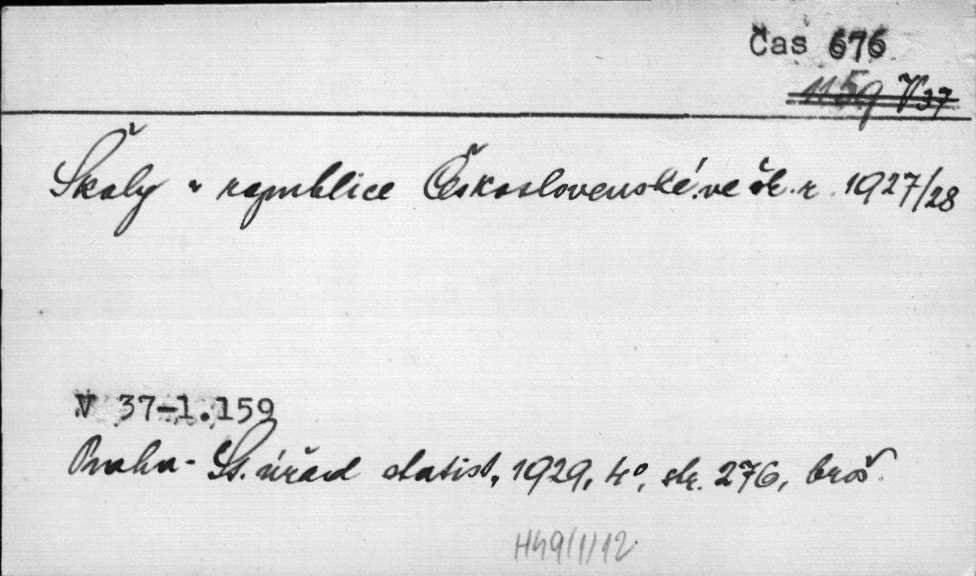 Čas 676
1159 V 37
Školy v republice Československé ve šk. r. 1927/28
V 37-1.159
Praha - St. úřad statist., 1929, 4°, str. 276, brož.
H49/1/12